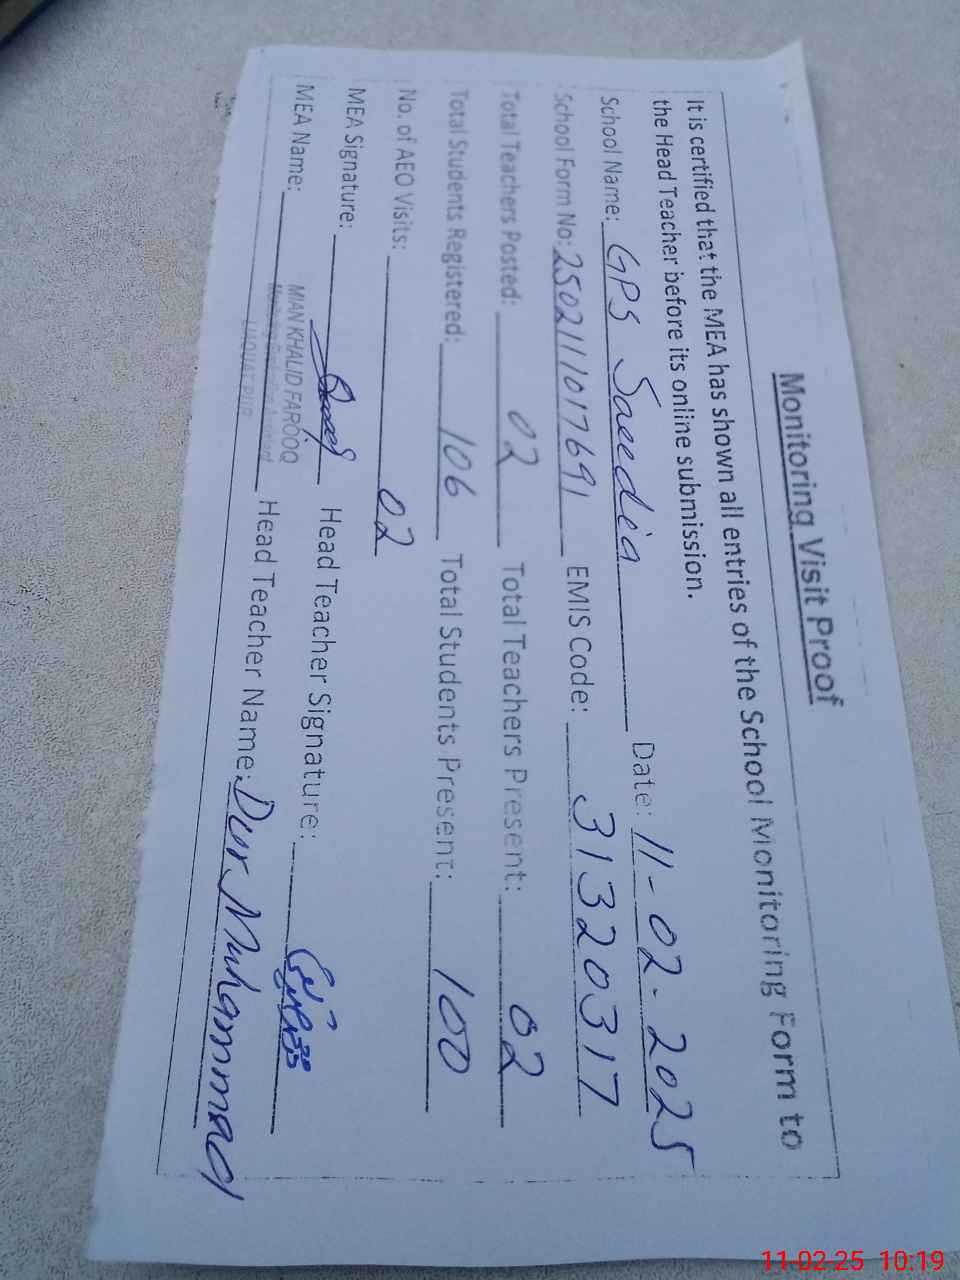 Monitoring Visit Proof
It is certified that the MEA has shown all entries of the School Monitoring Form to
the Head Teacher before its online submission.
School Name: GPS Saeedia Date: 11-02-2025
School Form No: 250211017691 EMIS Code: 31320317
Total Teachers Posted: 02 Total Teachers Present: 02
Total Students Registered: 106 Total Students Present: 100
No. of AEO Visits: 02
MEA Signature: Head Teacher Signature:
MIAN KHALID FAROOQ
MEA Name: Head Teacher Name: Dur Muhammad
LIAQUAT PUR
11-02-25 10:19